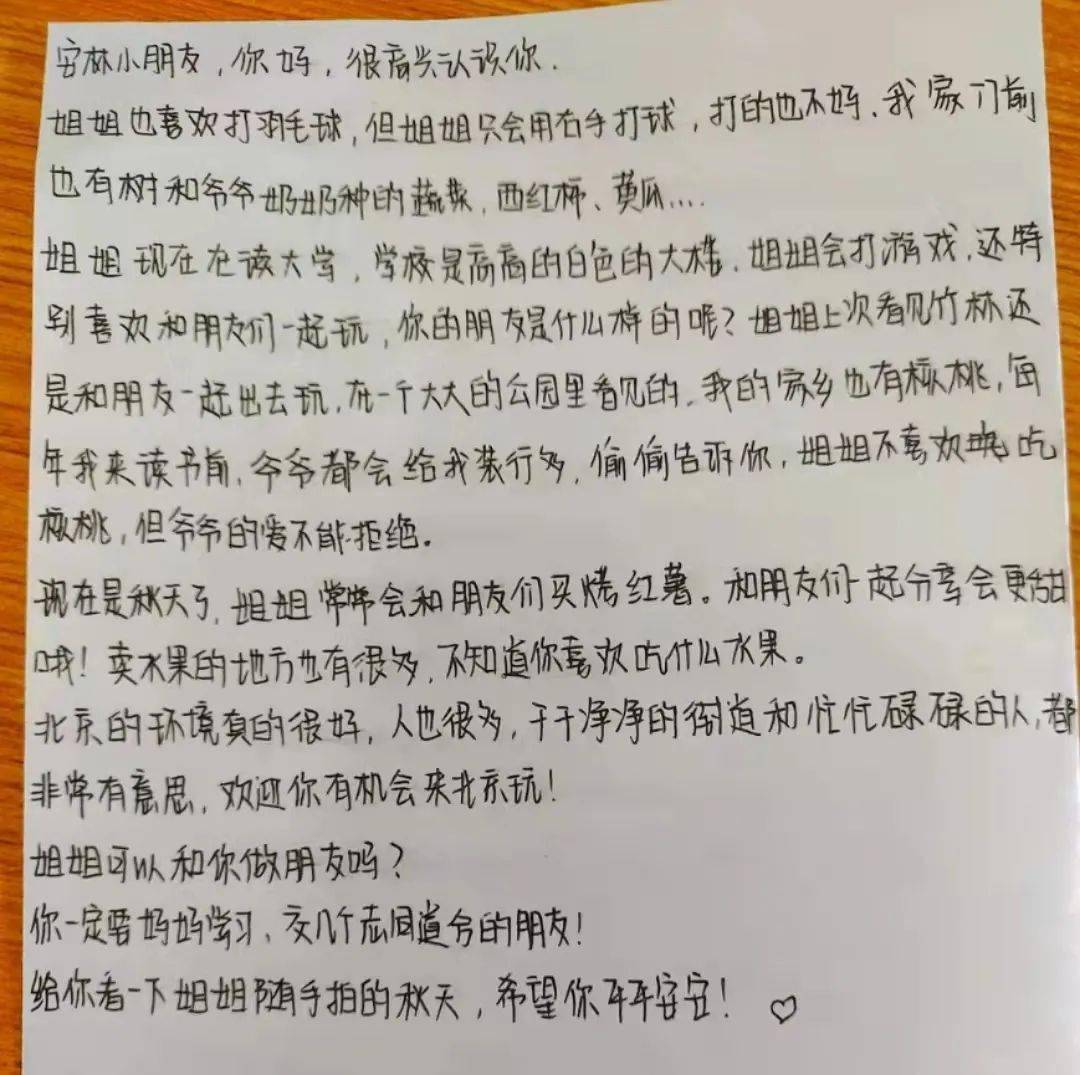 安林小朋友，你好，很高兴认识你.
姐姐也喜欢打羽毛球，但姐姐只会用右手打球，打的也不好、我家门前
也有树和爷爷奶奶种的蔬菜，西红柿、黄瓜....
姐姐现在在读大学，学校是高高的白色的大楼．姐姐会打游戏，还特
别喜欢和朋友们一起玩，你的朋友是什么样的呢？姐姐上次看见竹林还
是和朋友一起出去玩，在一个大大的公园里看见的．我的家乡也有核桃，每
年我来读书前，爷爷都会给我装行多，偷偷告诉你，姐姐不喜欢吃
核桃，但爷爷的爱不能拒绝。
现在是秋天了，姐姐常常会和朋友们买烤红薯。和朋友们一起分享会更甜
哦！卖水果的地方也有很多，不知道你喜欢吃什么水果。
北京的环境真的很好，人也很多，干干净净的街道和忙忙碌碌的人，都
非常有意思，欢迎你有机会来北京玩！
姐姐可以和你做朋友吗？
你一定要好好学习、交几个志同道合的朋友！
给你看一下姐姐随手拍的秋天，希望你平平安安！♡